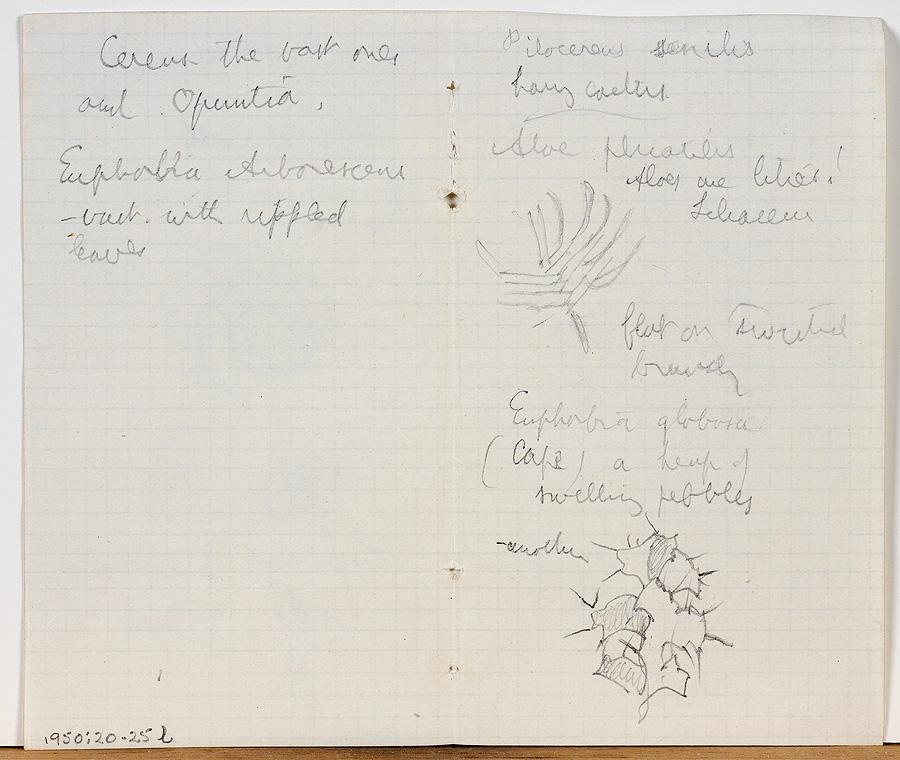 Cereus the vast ones
and Opuntia.
Euphorbia Arborescens
- vast. with rippled
leaves
1950:20-25 l
Pilocereus senilis
hairy cactus
Aloe plicatilis
Aloes are lilies!
Liliaceum
flat on twisted
branch
Euphorbia globosa
(Cape) a heap of
swelling pebbles
- another